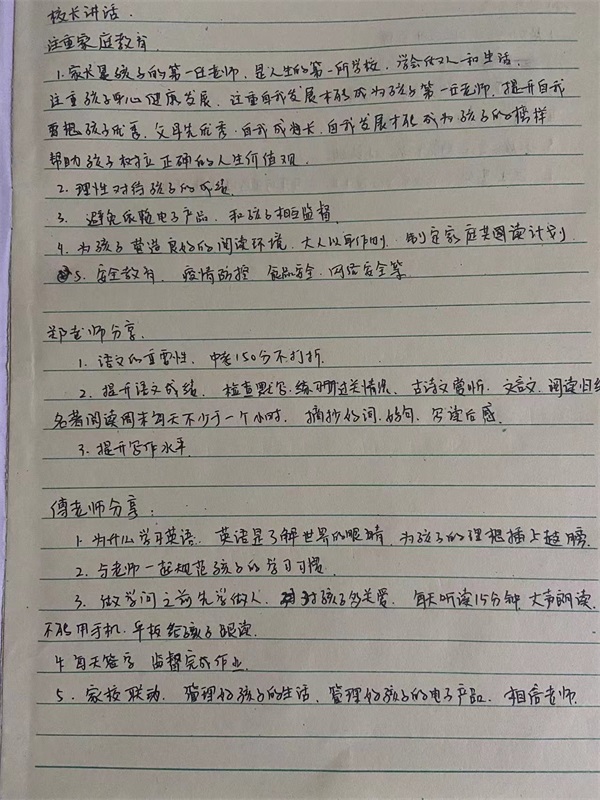 校长讲话.
注重家庭教育
1. 家长是孩子的第一任老师, 是人生的第一所学校, 学会做人和生活.
注重孩子身心健康发展, 注重自我发展才能成为孩子第一任老师, 提升自我
要想孩子优秀, 父母先优秀. 自我成为长, 自我发展才能成为孩子的榜样
帮助孩子树立正确的人生价值观.
2. 理性对待孩子的成绩
3. 避免依赖电子产品, 和孩子相互监督.
4. 为孩子营造良好的阅读环境, 大人以身作则, 制定家庭共同阅读计划
5. 安全教育, 疫情防控 食品安全, 网络安全等
郑老师分享.
1. 语文的重要性, 中考150分不打折.
2. 提升语文成绩, 检查默写.练习册过关情况, 古诗文赏析, 文言文, 阅读归纳
名著阅读周末每天不少于一个小时, 摘抄好词.好句, 写读后感.
3. 提升写作水平
傅老师分享:
1. 为什么学习英语, 英语是了解世界的眼睛, 为孩子的理想插上翅膀.
2. 与老师一起规范孩子的学习习惯
3. 做学问之前先学做人, 对孩子多关爱, 每天听读15分钟, 大声朗读.
不能用手机.平板给孩子跟读.
4. 每天签字 监督完成作业.
5. 家校联动. 管理好孩子的生活, 管理好孩子的电子产品. 相信老师.